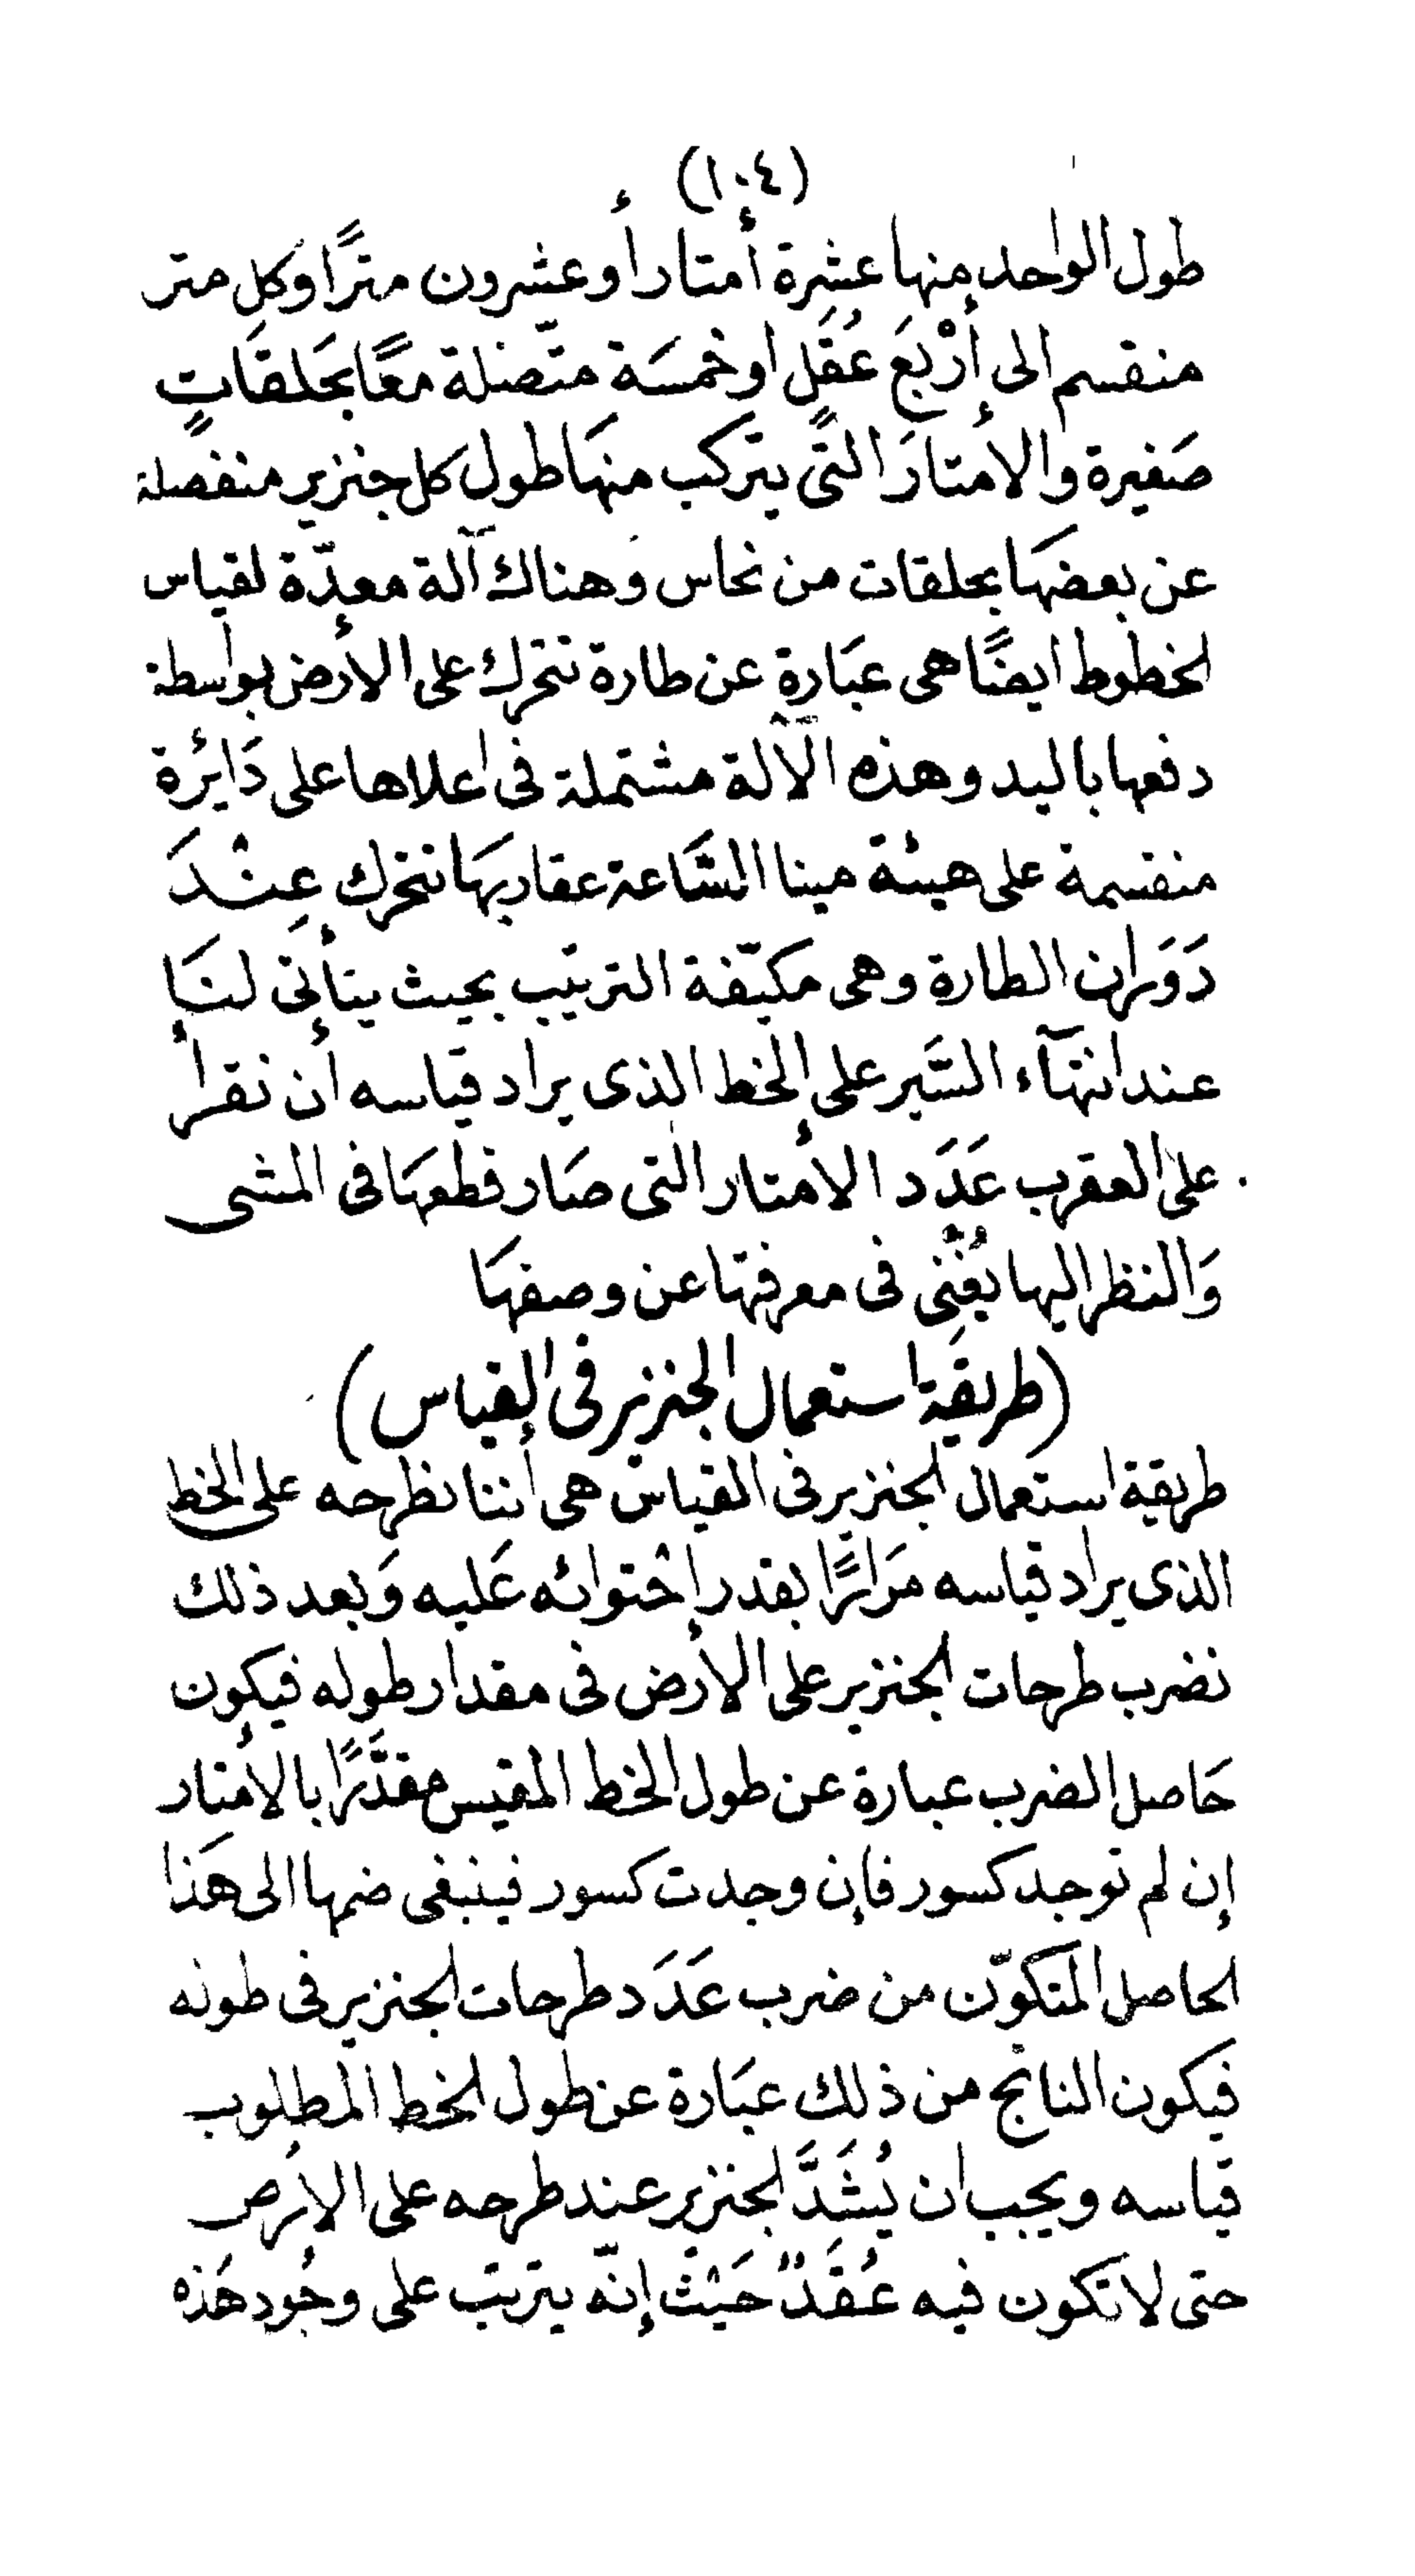 (١٠٤)
طول الواحد منها عشرة أمتار أو عشرون مترًا وكل متر
منقسم الى أرْبَعَ عُقَلٍ او خمسَة متّصلة معًا بحَلقَاتٍ
صَغيرة والأمتارَ التى يتركب منهَا طول كل جنزير منفصلة
عن بعضهَا بحلقات من نحاس وَهناك آلة معدّة لقياس
الخطوط ايضًا هى عبَارة عن طارة تتحرك على الأرض بواسطة
دفعها باليد وهذه الآلة مشتملة فى اعلاها على دَائِرة
منقسمة على هيئة مينا السَّاعة عقاربهَا تتحرك عِنْدَ
دَوَران الطارة وهى مكيّفة الترتيب بحيث يتأتى لنَا
عند انتهآء السَّير على الخط الذى يراد قياسه أن نقرأ
على العقرب عَدَد الأمتار التى صَار قطعهَا فى المشى
وَالنظر اليها يُغْنِى فى معرفتها عن وصفهَا
(طريقة استعمال الجنزير فى القياس)
طريقة استعمال الجنزير فى القياس هى أننا نطرحه على الخط
الذى يراد قياسه مَرارًا بقدر إحْتوائه عَليه وَبعد ذلك
نضرب طرحات الجنزير على الأرض فى مقدار طوله فيكون
حَاصل الضرب عبارة عن طول الخط المقيس مقدَّرًا بالأمتار
إن لم توجد كسور فإن وجدت كسور فينبغى ضمها الى هَذا
الحاصل المتكوّن من ضرب عَدَد طرحات الجنزير فى طوله
فيكون الناتج من ذلك عبَارة عن طول الخط المطلوب
قياسه ويجب ان يُشَدَّ الجنزير عند طرحه على الأرض
حتى لا تكون فيه عُقَدٌ حَيْثُ إنّه يترتب على وجُود هَذه